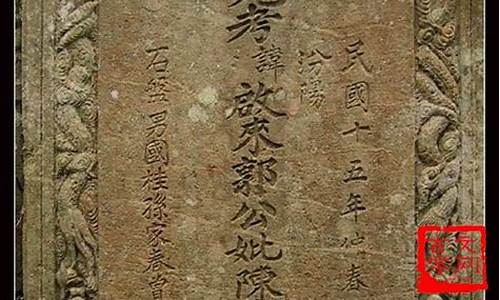 民國十五年仲春
汾陽
考諱啟來郭公妣陳
石盤男國桂孫家春曾